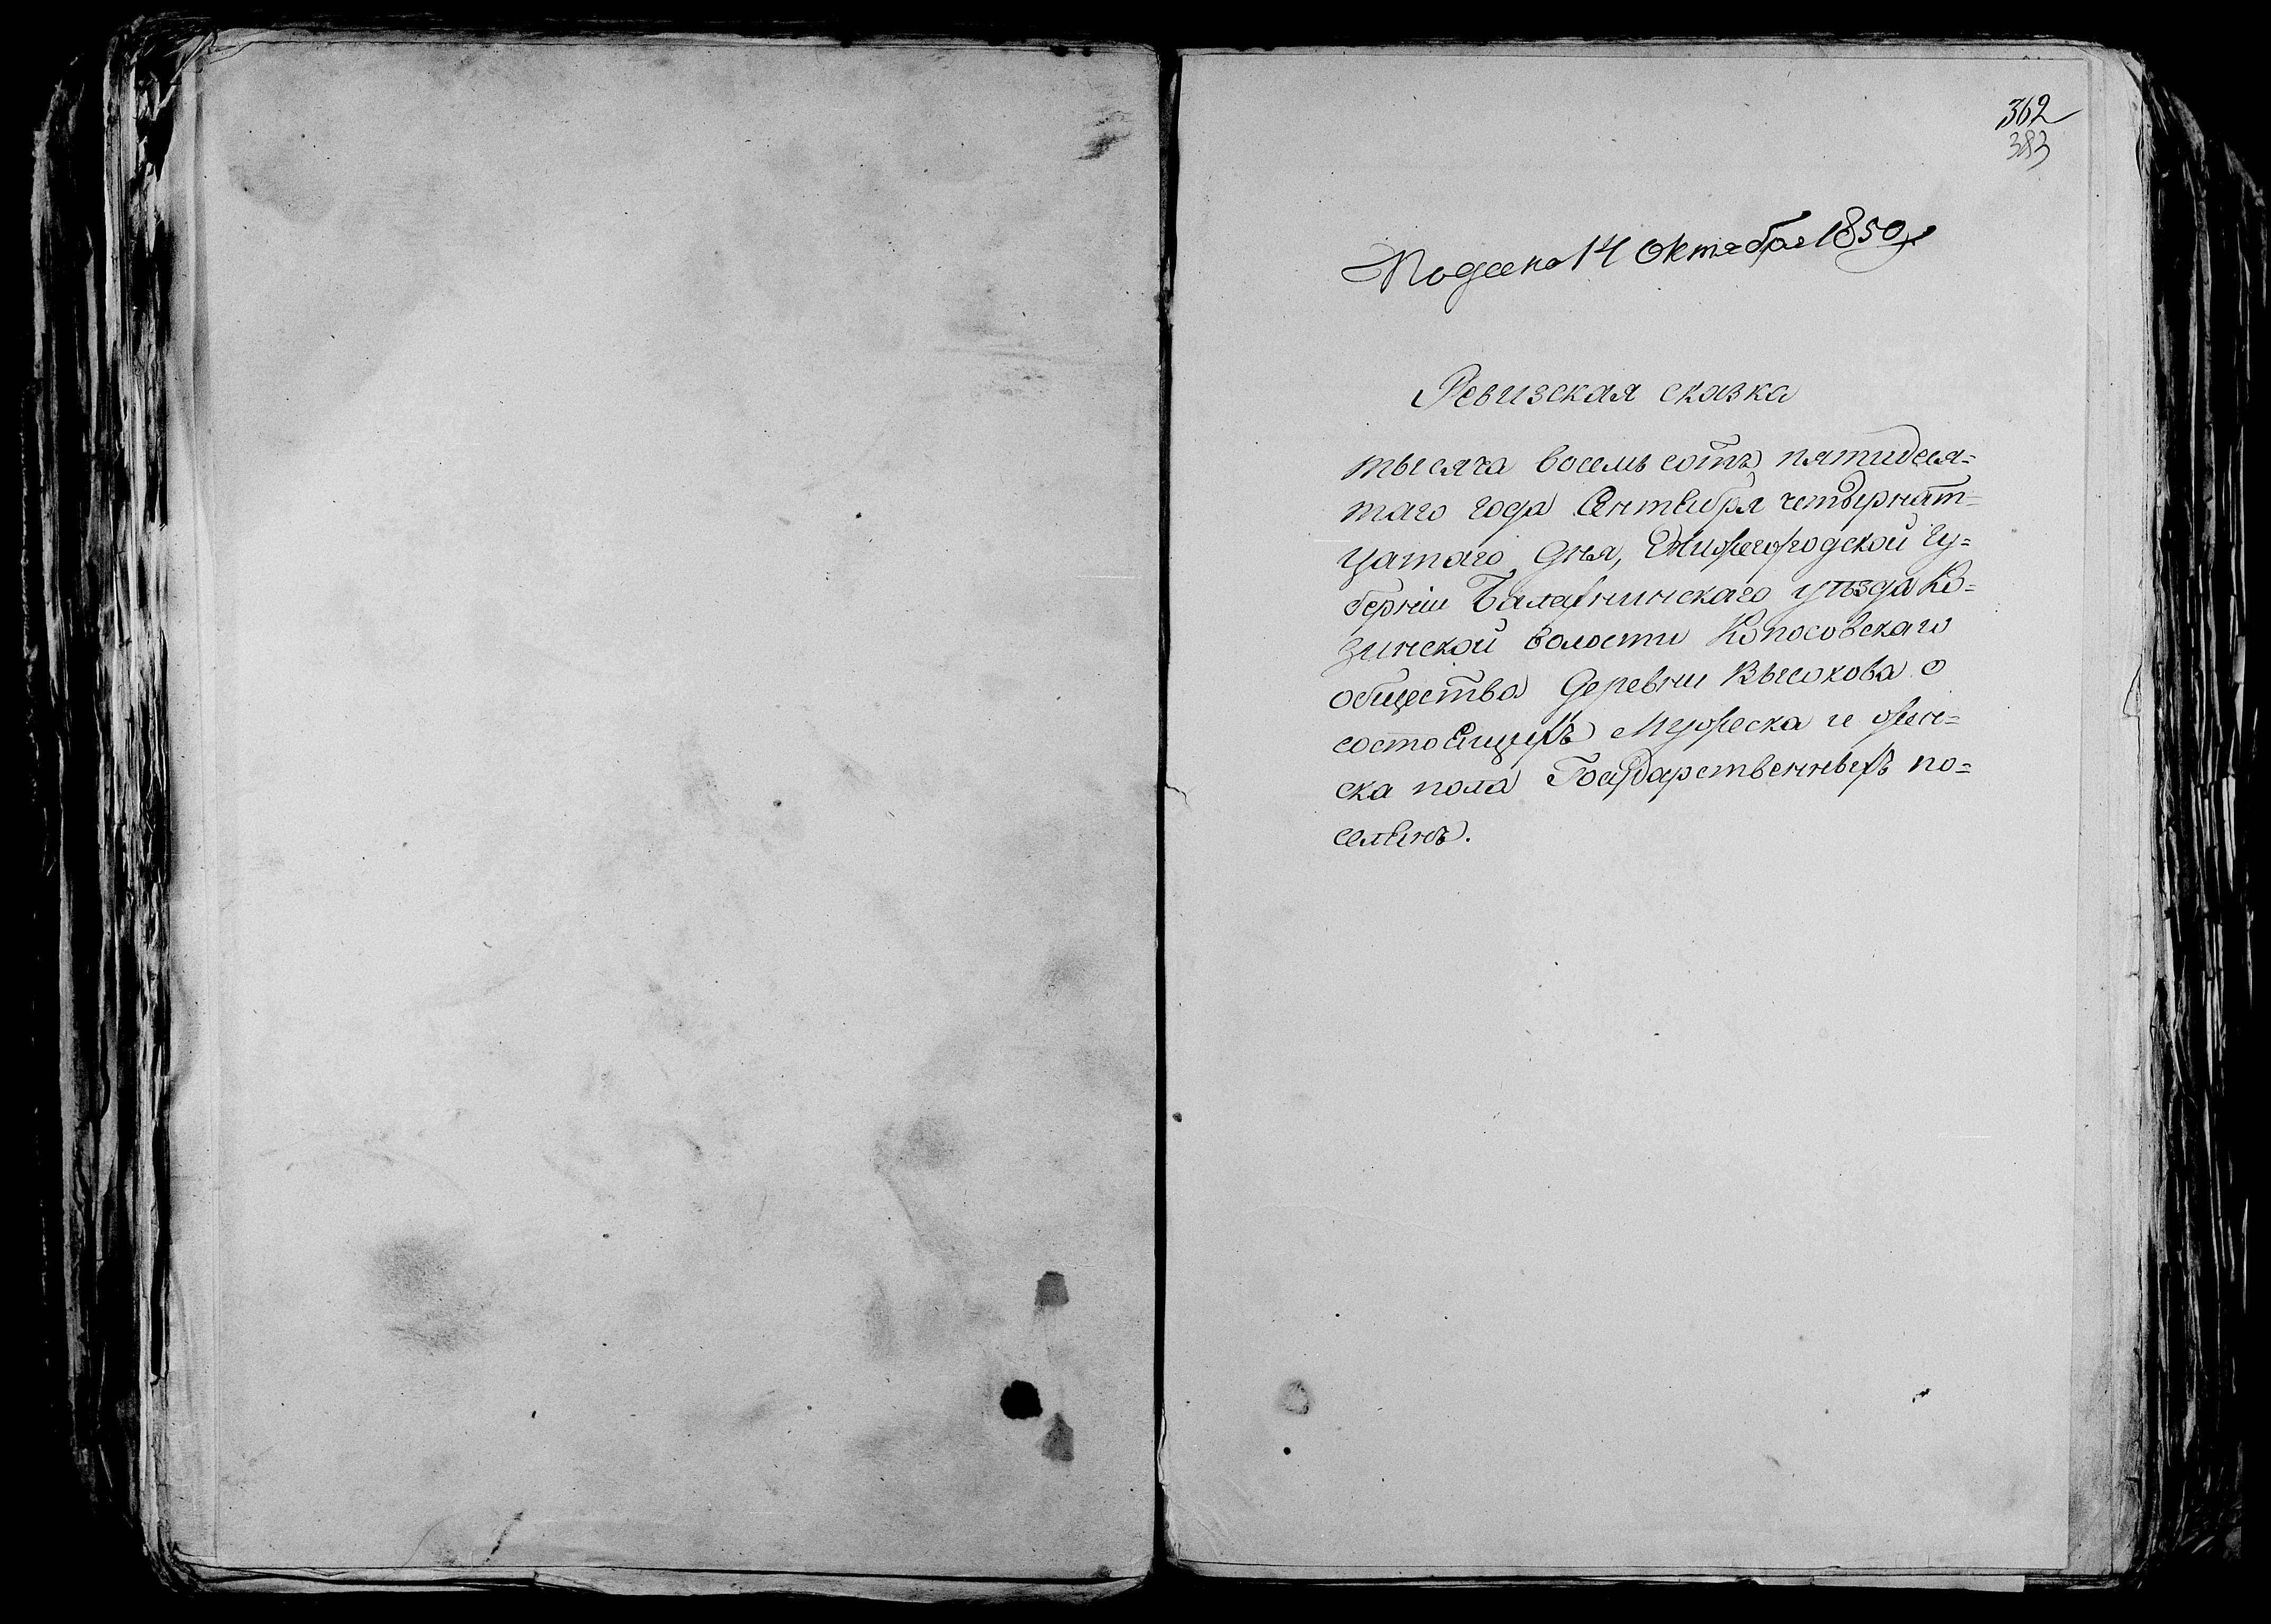 362
383
Подана 14 Октября 1850 г.
Ревизская сказка
тысяча восемь сотъ пятидеся=
таго года Сентября четвернат=
цатаго дня, Нижегородской Гу=
берніи Балахнинскаго уѣзда Ко=
зинской волости Копосовскаго
общества деревни Высокова о
состоящихъ Мужеска и жен=
ска пола Государственныхъ по=
селянъ.